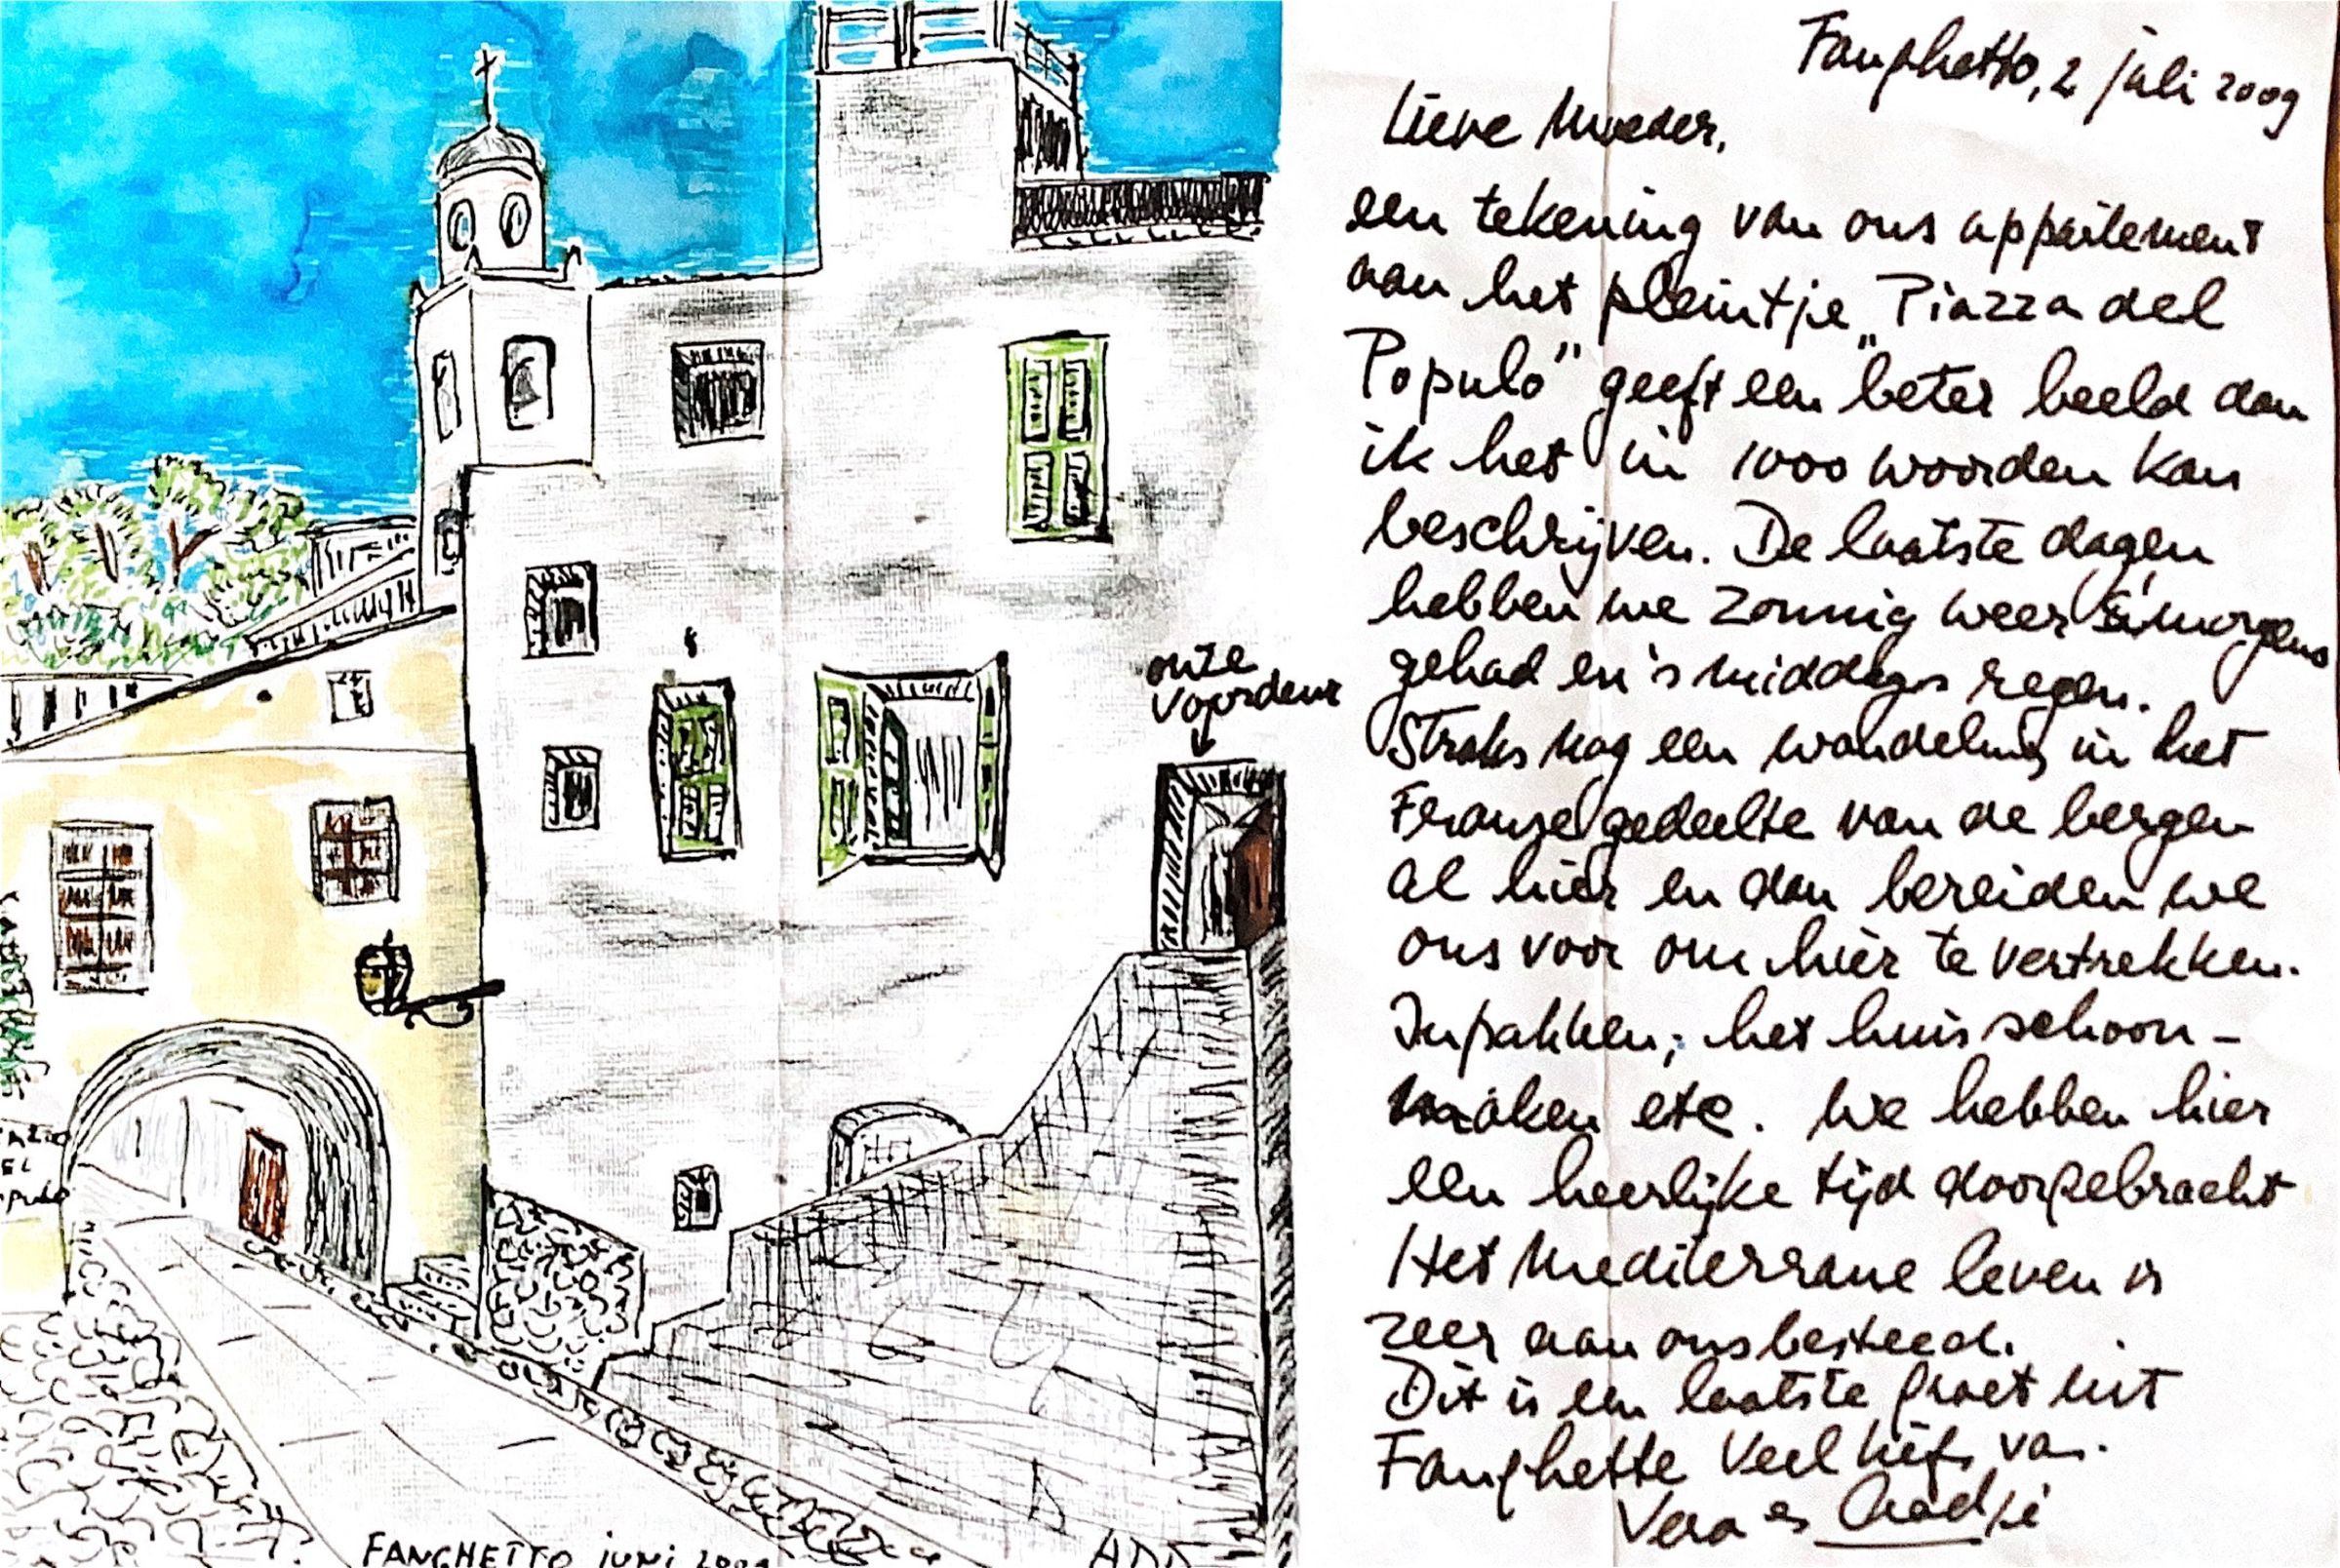 Fanghetto, 2 juli 2009
Lieve Moeder,
een tekening van ons appartement
aan het pleintje „Piazza del
Populo" geeft een beter beeld dan
ik het in 1000 woorden kan
beschrijven. De laatste dagen
hebben we zonnig weer 's morgens
gehad en 's middags regen.
Straks nog een wandeling in het
Franse gedeelte van de bergen
al hier en dan bereiden we
ons voor om hier te vertrekken.
Inpakken; het huis schoon-
maken etc. We hebben hier
een heerlijke tijd doorgebracht
Het mediterrane leven is
zeer aan ons besteed.
Dit is een laatste groet uit
Fanghette Veel liefs van
Vera en Aadje
onze
voordeur
EL
FANGHETTO juni 2009